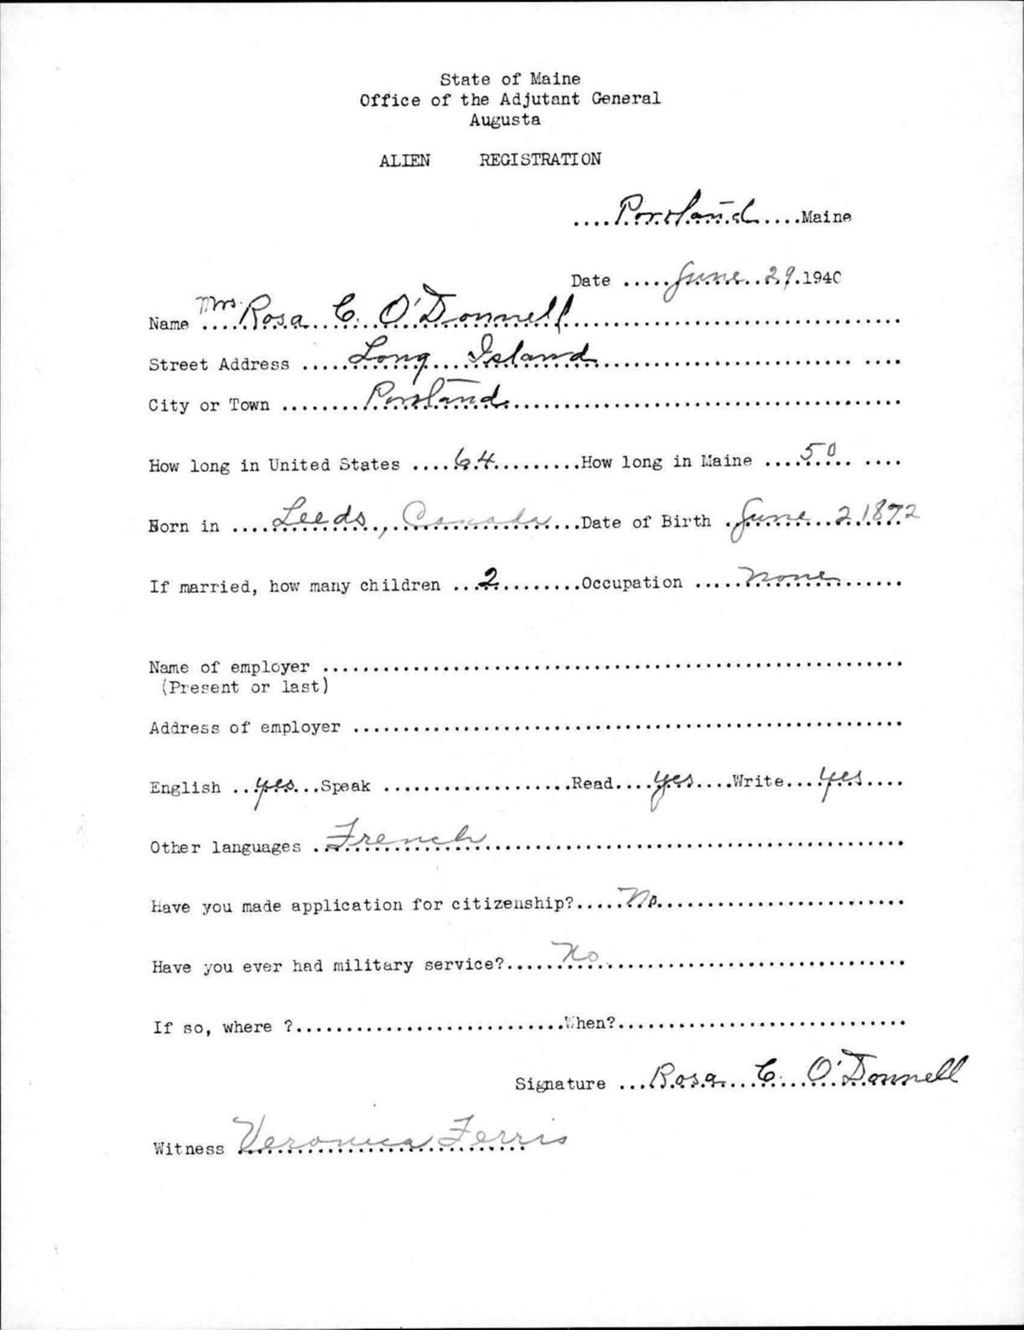 State of Maine
Office of the Adjutant General
Augusta
ALIEN REGISTRATION
....Portland....Maine
Date .....June 29.1940
Name Mrs. Rosa C. O'Donnell
Street Address ..... Long Island
City or Town ........ Portland
How long in United States ....64..........How long in Maine ....50.... ....
Born in ....Leeds, Canada...Date of Birth .June 2 1872
If married, how many children ...2.........Occupation .....none......
Name of employer ........................................................
(Present or last)
Address of employer .....................................................
English ..yes...Speak ...................Read....yes....Write...yes....
Other languages .French
Have you made application for citizenship?.....No.........................
Have you ever had military service?.....No................................
If so, where ?...........................When?............................
Signature ...Rosa C. O'Donnell
Witness Veronica Ferris